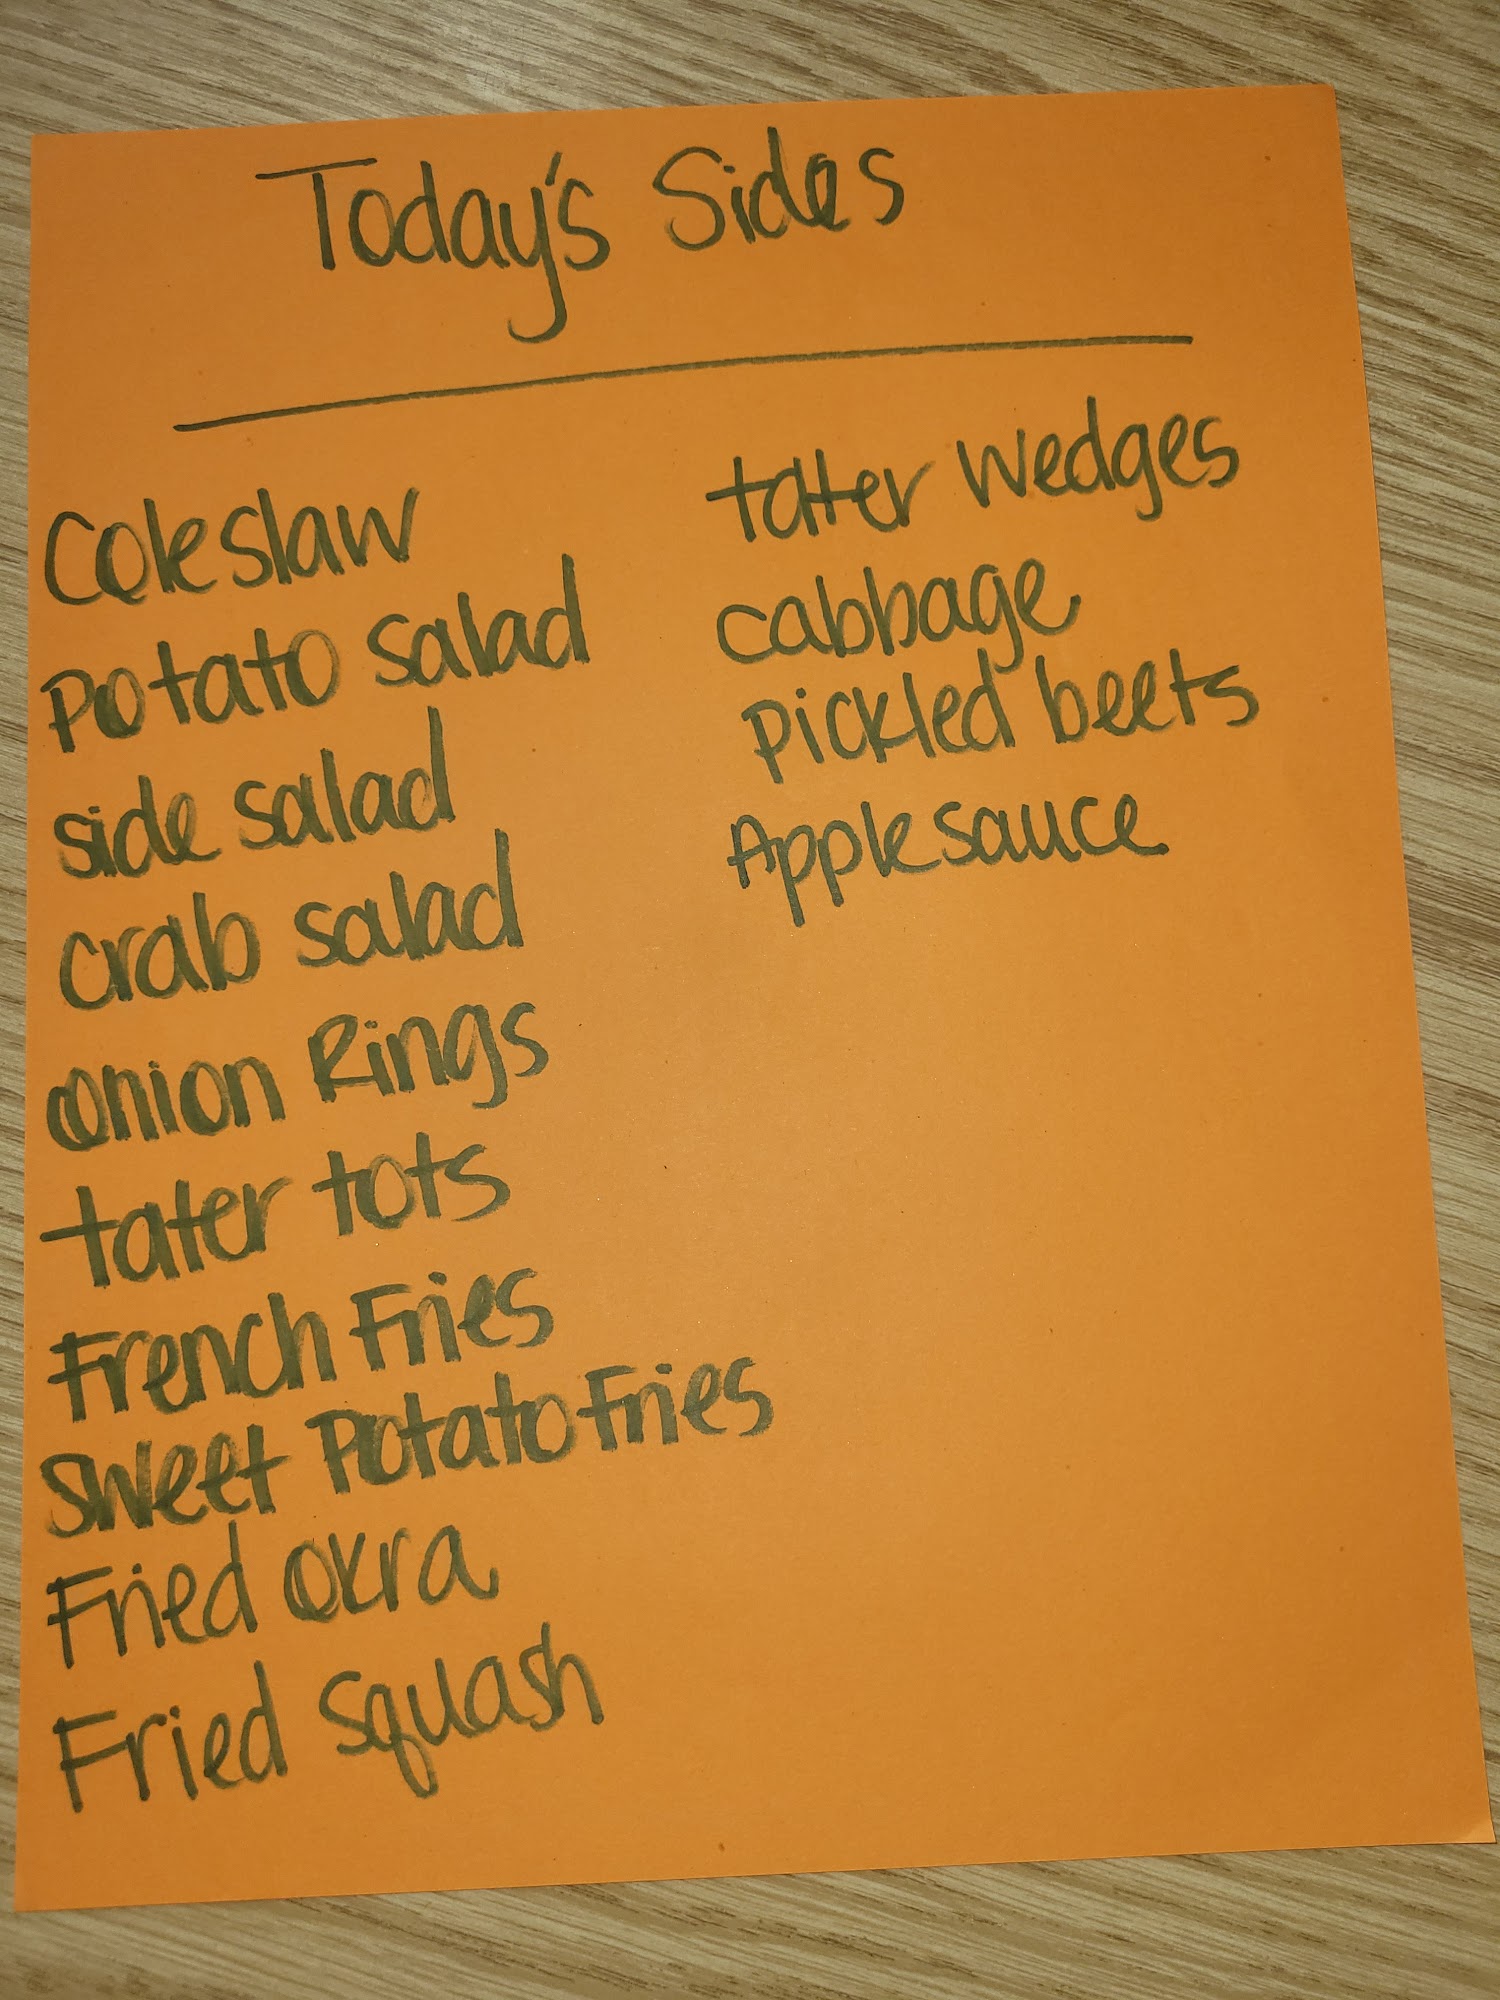 Today's Sides
Coleslaw
Potato Salad
side salad
crab salad
onion Rings
tater tots
French Fries
Sweet Potato Fries
Fried okra
Fried Squash
tatter wedges
cabbage
pickled beets
Applesauce